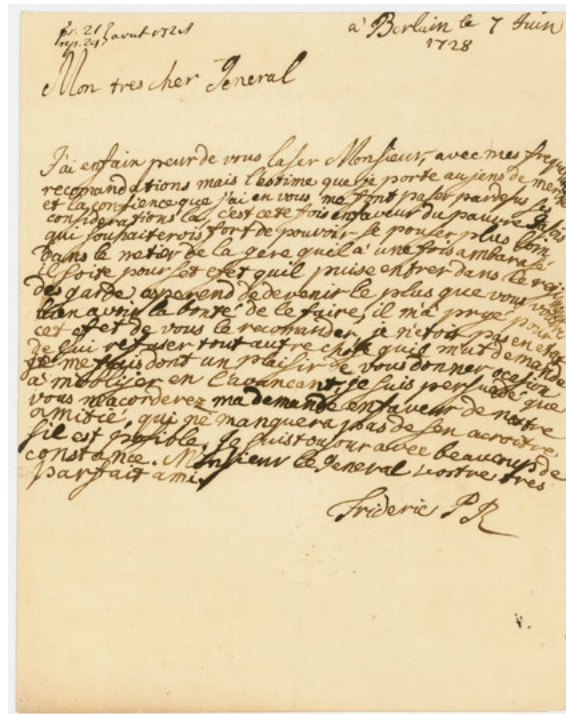 à Berlain le 7 Juin
1728
Mon tres cher General
J'ai enfain peur de vous laser Monsieur, avec mes freque
recomandations mais l'estime que je porte au jens de merite
et la confience que j'ai en vous me font paser pardesus ses
considerations la, c'est cete fois enfaveur du pauvre
qui souhaiterois fort de pouvoir se pouser plus loin
dans le metier de la gere quil à une fois ambarasé
il soite pour set efet quil puise entrer dans le
des garde devenir le plus que vous
bien avoir la bonté de le faire, il ma pryé pour
cet efet de vous le recomander, je n'etois pas en etat
de lui refuser tout autre chose quil mut demandé
je me fais dont un plaisir de vous donner ocasion
a m'obliser en l'avanceant, je suis persuadé que
vous m'acorderez ma demande enfaveur de nostre
amitié, qui ne manquera pas de s'en acroitre
s'il est posible, je suis toujour avec beaucoup de
constance. Monsieur le General vostre tres
parfait ami
Frideric PR